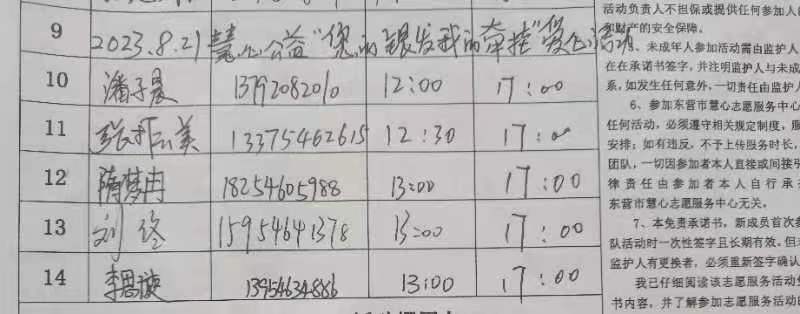 9 2023.8.21 慧心公益"您的银发我的牵挂"爱心活动
10 潘子晨 13792082010 12:00 17:00
11 13375462615 12:30 17:00
12 隋梦冉 18254605988 13:00 17:00
13 刘终 15954641378 13:00 17:00
14 李思璇 13954634886 13:00 17:00
活动负责人不担保或提供任何参加人
和财产的安全保障。
、未成年人参加活动需由监护人
在在承诺书签字,并注明监护人与未成
系,如发生任何意外,一切责任由监护人
6、参加东营市慧心志愿服务中心
任何活动,必须遵守相关规定制度,服
安排;如有违反,不予上传服务时长,
团队,一切因参加者本人直接或间接引
律责任由参加者本人自行承
东营市慧心志愿服务中心无关。
7、本免责承诺书,新成员首次参
队活动时一次性签字且长期有效,但
监护人有更换者,必须重新签字确认
我已仔细阅读该志愿服务活动免
书内容,并了解参加志愿服务活动的